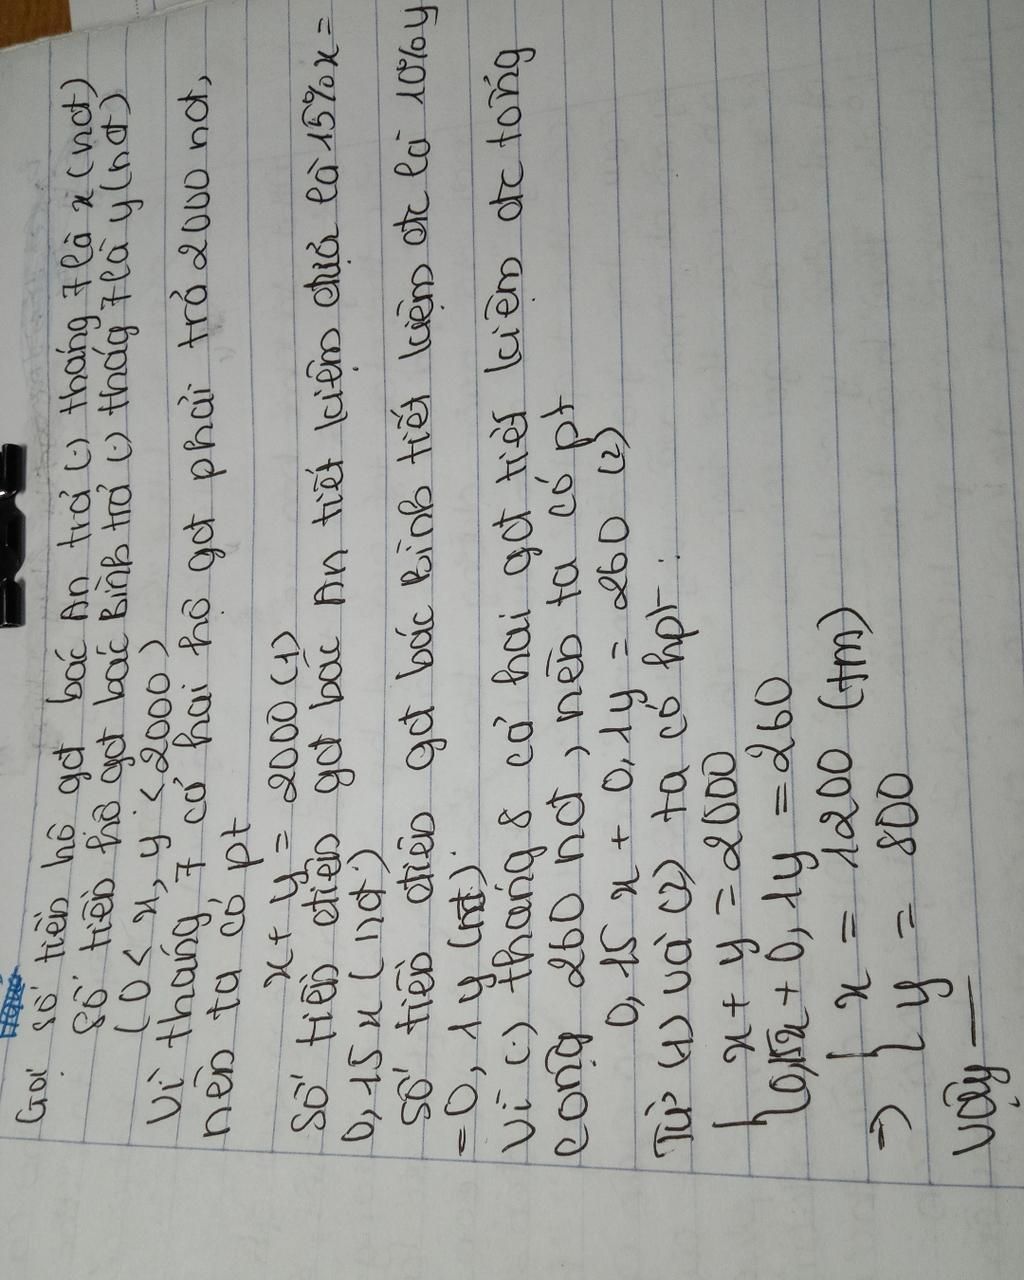 Gọi số tiền hộ gđ bác An trả (.) tháng 7 là x (nđ)
số tiền hộ gđ bác Bình trả (.) thág 7 là y (nđ)
(0 < x, y < 2000)
Vì tháng 7 cả hai hộ gđ phải trả 2000 nđ,
nên ta có pt
x + y = 2000 (1)
Số tiền điện gđ bác An tiết kiệm được là 15% x =
0,15 x (nđ)
Số tiền điện gđ bác Bình tiết kiệm đc là 10% y
= 0,1y (nđ).
Vì (.) tháng 8 cả hai gđ tiết kiệm đc tổng
cộng 260 nđ, nên ta có pt
0,15 x + 0,1y = 260 (2)
Từ (1) và (2) ta có hpt:
{ x + y = 2000
0,15x + 0,1y = 260
=> { x = 1200 (tm)
y = 800
Vậy __